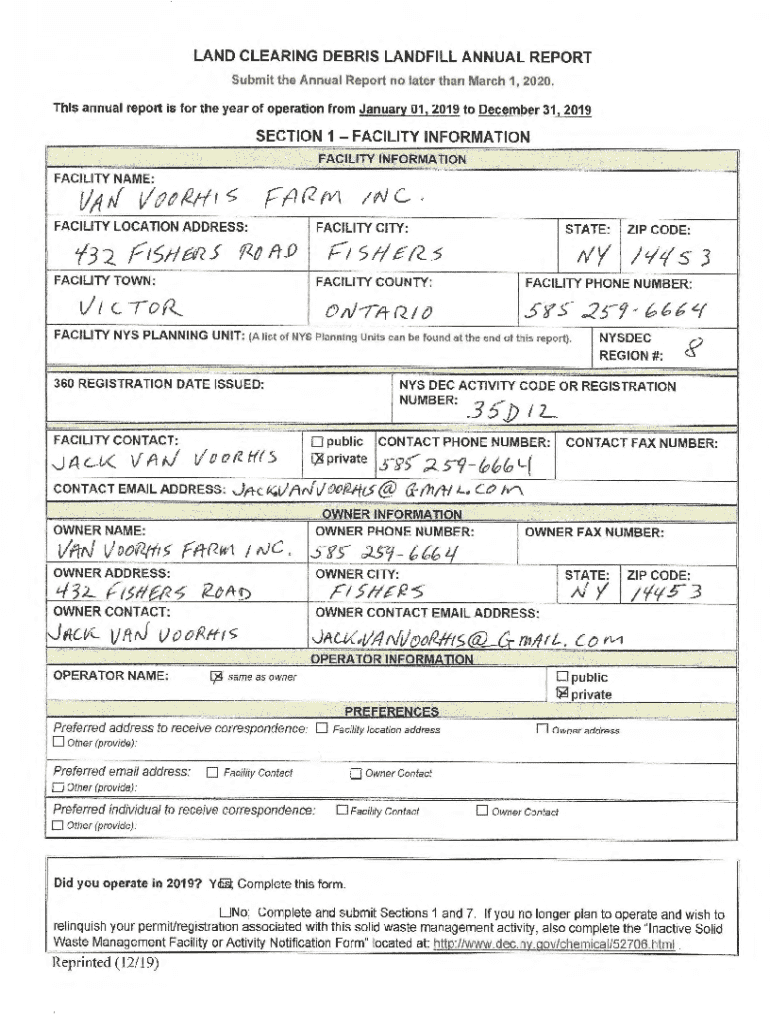 LAND CLEARING DEBRIS LANDFILL ANNUAL REPORT
Submit the Annual Report no later than March 1, 2020.
This annual report is for the year of operation from January 01, 2019 to December 31, 2019
SECTION 1 – FACILITY INFORMATION
FACILITY INFORMATION
FACILITY NAME:
VAN VOORHIS FARM INC.
FACILITY LOCATION ADDRESS: FACILITY CITY: STATE: ZIP CODE:
432 FISHERS ROAD FISHERS NY 14453
FACILITY TOWN: FACILITY COUNTY: FACILITY PHONE NUMBER:
VICTOR ONTARIO 585 259-6664
FACILITY NYS PLANNING UNIT: (A list of NYS Planning Units can be found at the end of this report). NYSDEC
REGION #: 8
360 REGISTRATION DATE ISSUED: NYS DEC ACTIVITY CODE OR REGISTRATION
NUMBER: 35D12
FACILITY CONTACT: ☐ public CONTACT PHONE NUMBER: CONTACT FAX NUMBER:
JACK VAN VOORHIS ☒ private 585 259-6664
CONTACT EMAIL ADDRESS: JACK.VANVOORHIS@GMAIL.COM
OWNER INFORMATION
OWNER NAME: OWNER PHONE NUMBER: OWNER FAX NUMBER:
VAN VOORHIS FARM INC. 585 259-6664
OWNER ADDRESS: OWNER CITY: STATE: ZIP CODE:
432 FISHERS ROAD FISHERS NY 14453
OWNER CONTACT: OWNER CONTACT EMAIL ADDRESS:
JACK VAN VOORHIS JACK.VANVOORHIS@GMAIL.COM
OPERATOR INFORMATION
OPERATOR NAME: ☒ same as owner ☐ public
☒ private
PREFERENCES
Preferred address to receive correspondence: ☐ Facility location address ☐ Owner address
☐ Other (provide):
Preferred email address: ☐ Facility Contact ☐ Owner Contact
☐ Other (provide):
Preferred individual to receive correspondence: ☐ Facility Contact ☐ Owner Contact
☐ Other (provide):
Did you operate in 2019? Yes; Complete this form.
☐No; Complete and submit Sections 1 and 7. If you no longer plan to operate and wish to
relinquish your permit/registration associated with this solid waste management activity, also complete the "Inactive Solid
Waste Management Facility or Activity Notification Form" located at: http://www.dec.ny.gov/chemical/52706.html .
Reprinted (12/19)